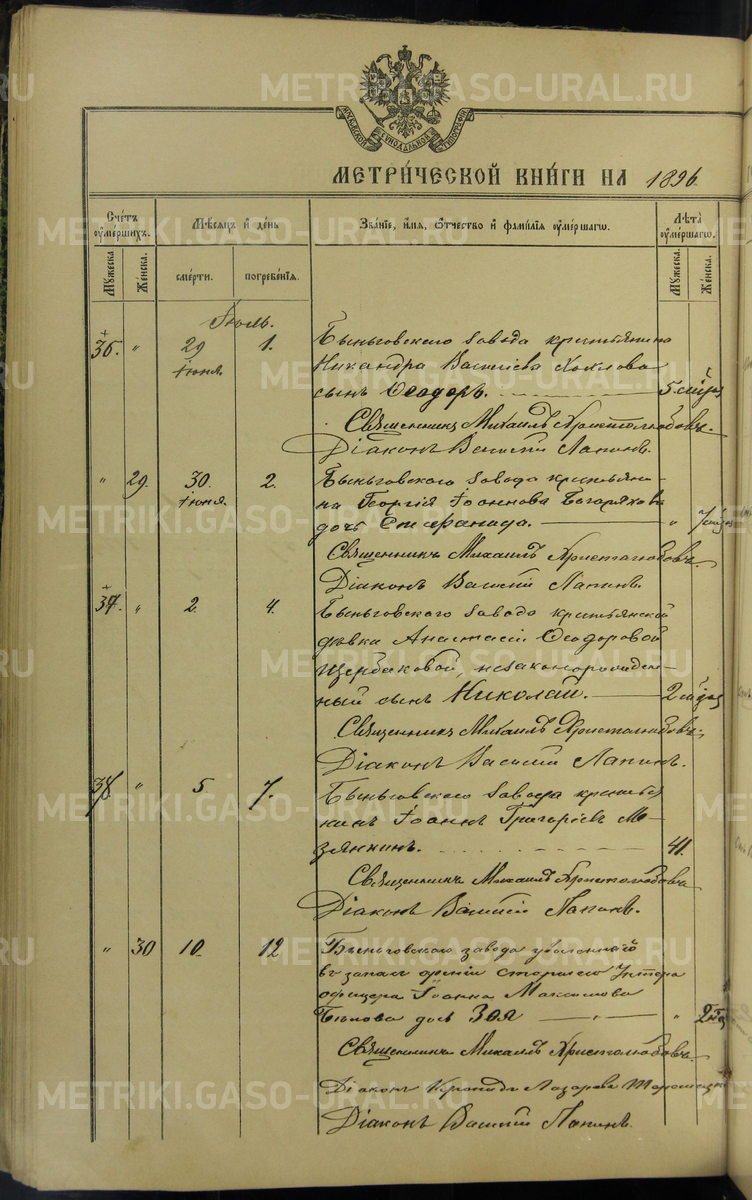 МЕТРИ́ЧЕСКОЙ КНИ́ГИ НА 1896
Сче́тъ оу҆ме́ршихъ.
Мѣ́сяцъ и҆ де́нь
Зва́нїе, и҆́мя, ѻ҆́тчество и҆ фами́лїя оу҆ме́ршагѡ.
Лѣ́та оу҆ме́ршагѡ.
Му́жеска.
Же́нска.
сме́рти.
погребе́нїя.
Му́жеска.
Же́нска.
Іюль.
36. " 29 іюня 1. Быньговскаго завода крестьянина
Никандра Васильева Хохлова
сынъ Ѳеодоръ. 5 мѣсяц
Священникъ Михаилъ Христолюбовъ.
Діаконъ Василій Лапинъ.
" 29. 30. іюня. 2. Быньговскаго завода крестьяни-
на Георгія Іоаннова
дочь Стефанида. "
Священникъ Михаилъ Христолюбовъ.
Діаконъ Василій Лапинъ.
37. " 2. 4. Быньговскаго завода крестьянской
дѣвки Анастасіи Ѳеодоровой
Щербаковой, незаконорожден-
ный сынъ Николай.
Священникъ Михаилъ Христолюбовъ.
Діаконъ Василій Лапинъ.
38. " 5 7. Быньговскаго завода крестья
нинъ Іоаннъ Григорьевъ Мо-
зянкинъ. 41.
Священникъ Михаилъ Христолюбовъ
Діаконъ Василій Лапинъ.
" 30 10. 12 Быньговскаго завода уволеннаго
въ запасъ арміи старшаго Унтеръ
офицера Іоанна Максимова
Бѣлова дочь Зоя "
Священникъ Михаилъ Христолюбовъ.
Діаконъ Кронидъ Лазаревъ
Діаконъ Василій Лапинъ.
METRIKI.GASO-URAL.RU